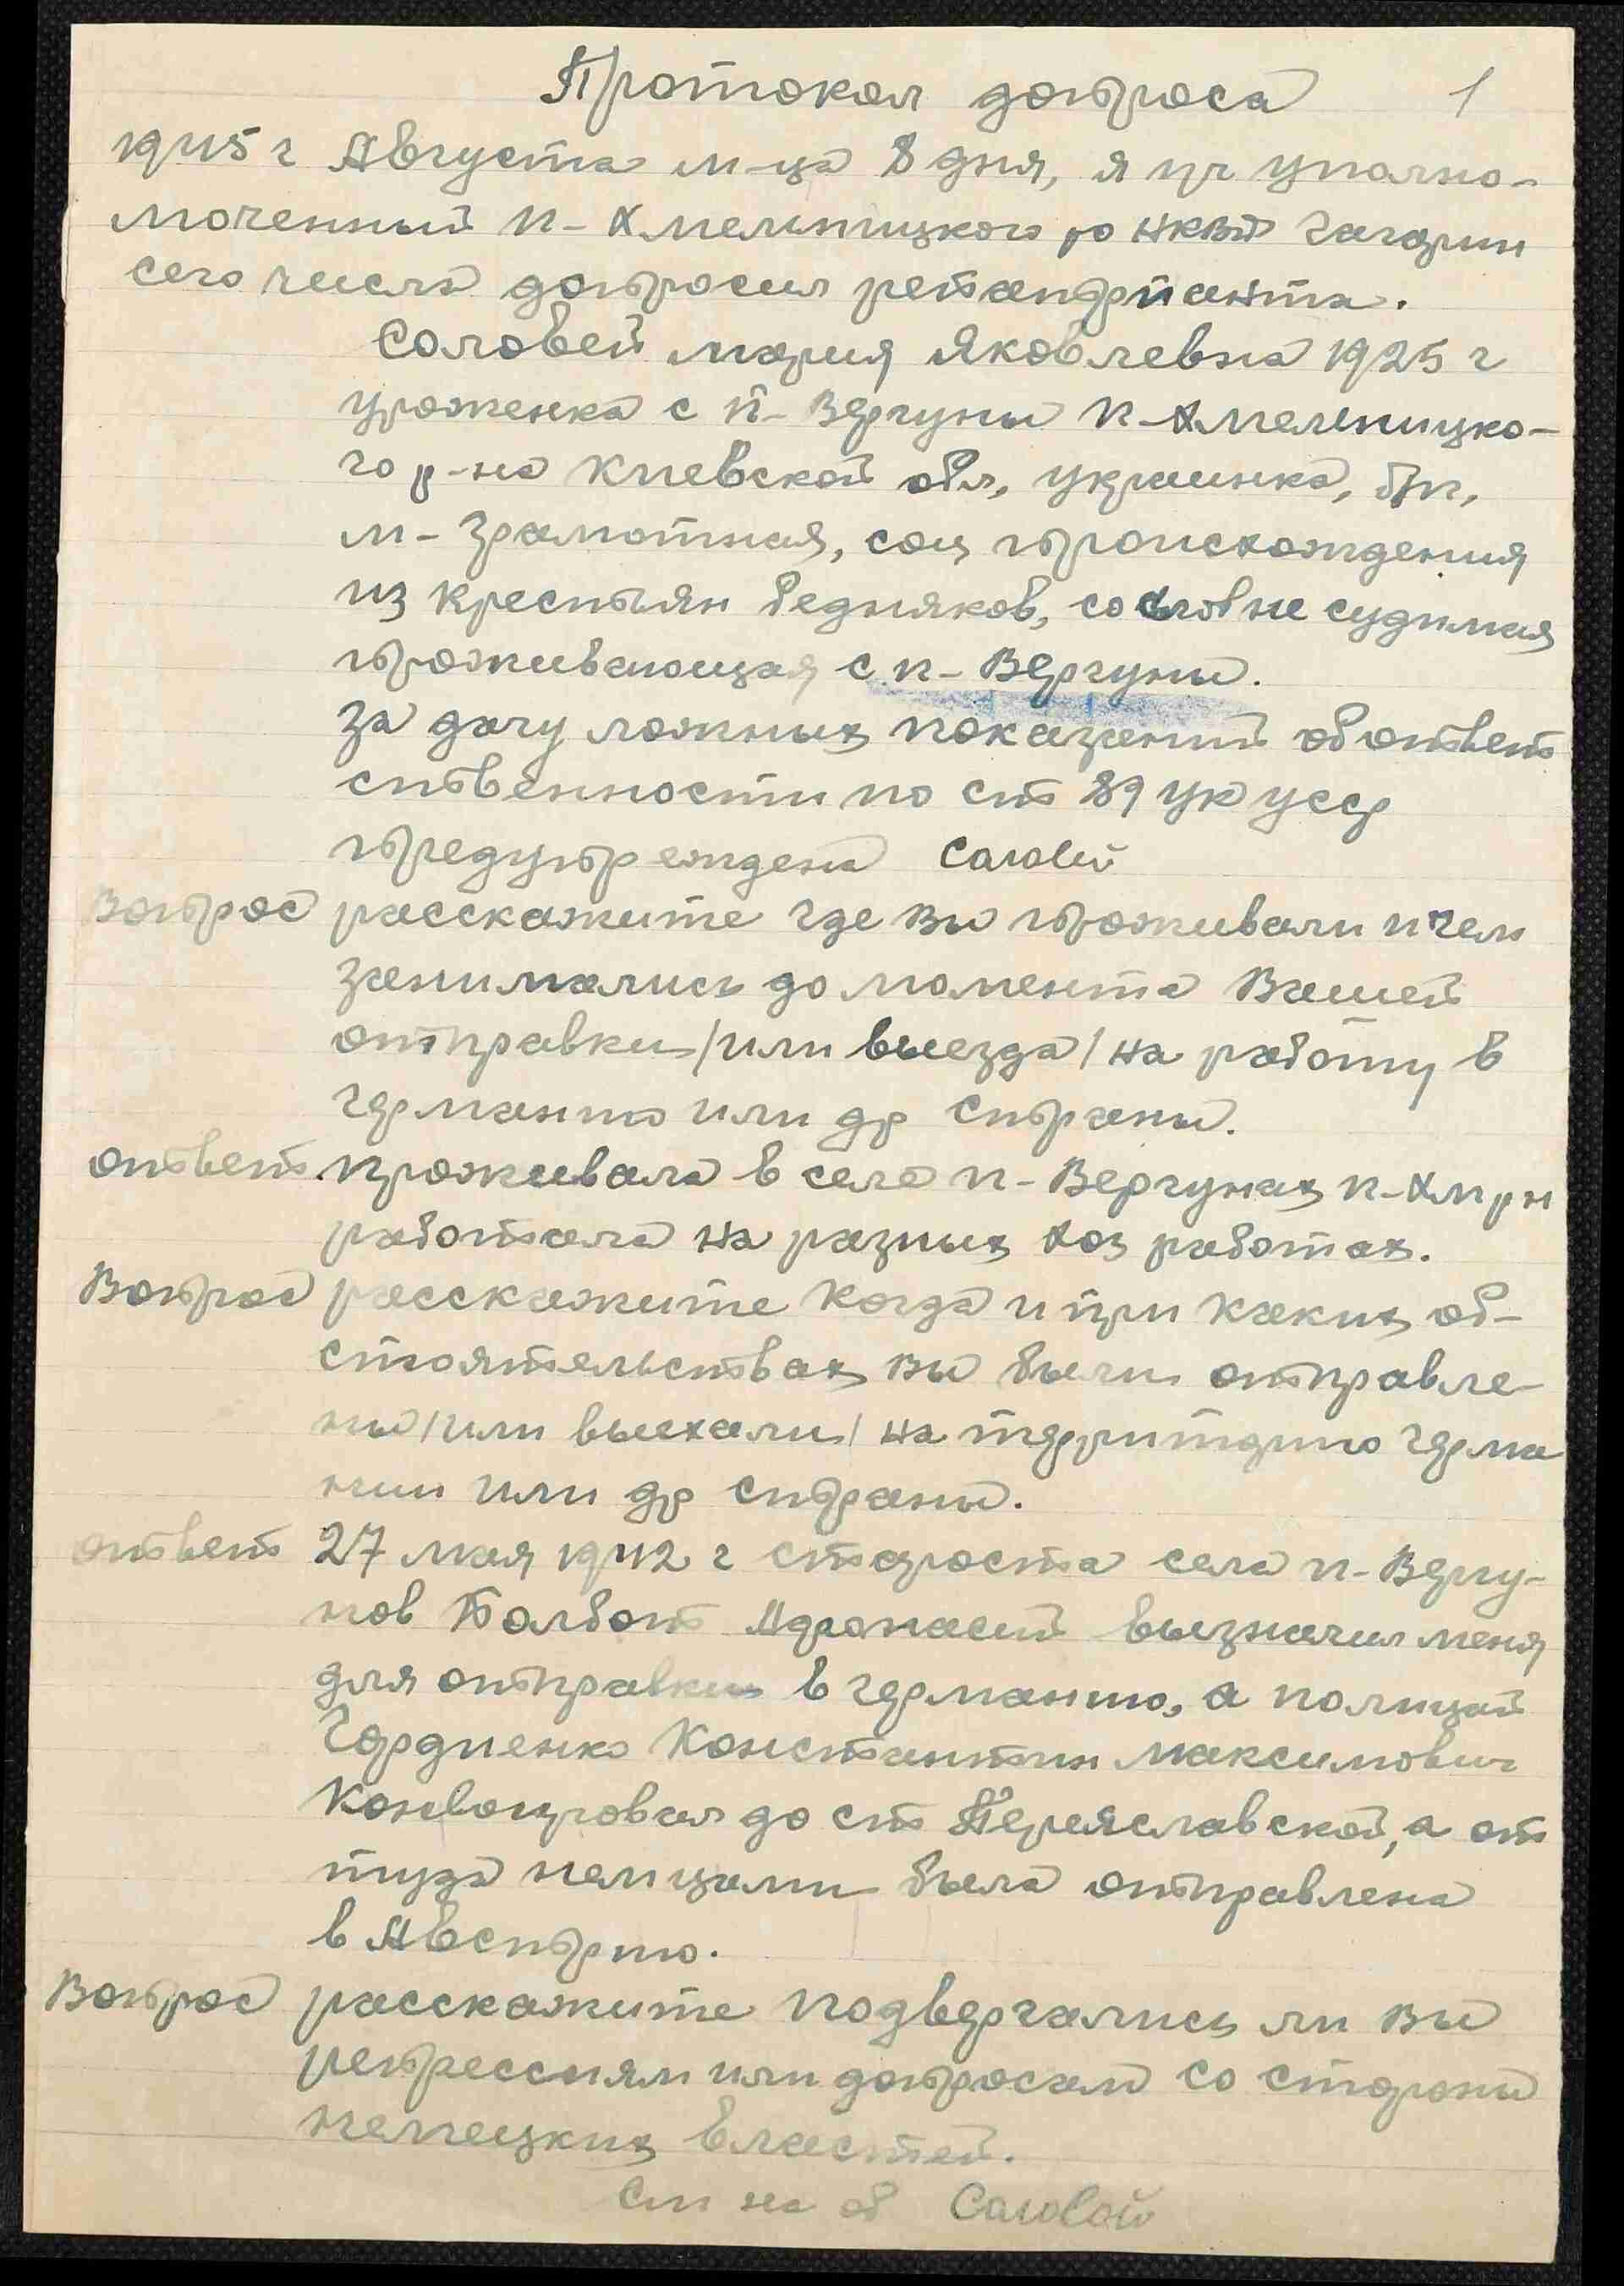 Протокол допроса 1
1945 г Августа м-ца 8 дня, я уч уполно-
моченный П-Хмельницкого РО НКВД Гагарин
сего числа допросил репатрианта.
Соловей Мария Яковлевна 1925 г
уроженка с П-Вергуны П-Хмельницко-
го р-на Киевской обл, украинка, бп,
м-грамотная, соц происхождения
из крестьян бедняков, со слов не судимая
проживающая с П-Вергуны.
За дачу ложных показаний об ответ
ственности по ст 89 УК УССР
предупреждена Соловей
Вопрос расскажите где Вы проживали и чем
занимались до момента Вашей
отправки /или выезда/ на работу в
Германию или др страны.
Ответ. Проживала в селе П-Вергунах П-Хм рн
работала на разных хоз работах.
Вопрос расскажите Когда и при каких об-
стоятельствах Вы были отправле-
ны /или выехали/ на территорию Герма
нии или др страны.
Ответ 27 мая 1942 г староста села П-Вергу-
нов Болбот Афонасий вызначил меня
для отправки в Германию, а полицай
Гордиенко Константин Максимович
Конвоировал до ст Переяславской, а от
туда немцами была отправлена
в Австрию.
Вопрос расскажите подвергались ли Вы
репрессиям или допросам со стороны
немецких властей.
См на об Соловей